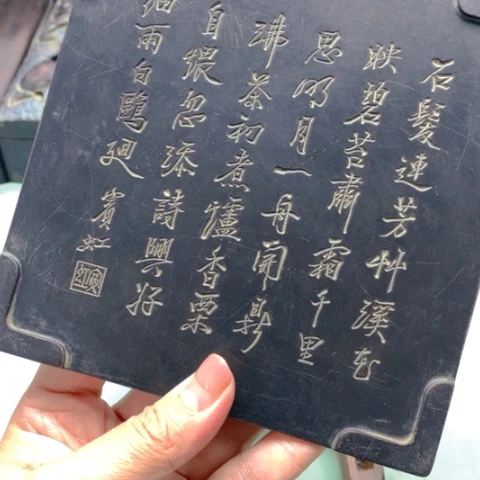 石髮連芳艸溪花
映碧苔肅霜千里
思明月一舟開鼎
沸茶初煮爐香票
自縀忽添詩興好
細雨白鷗廻
賓虹